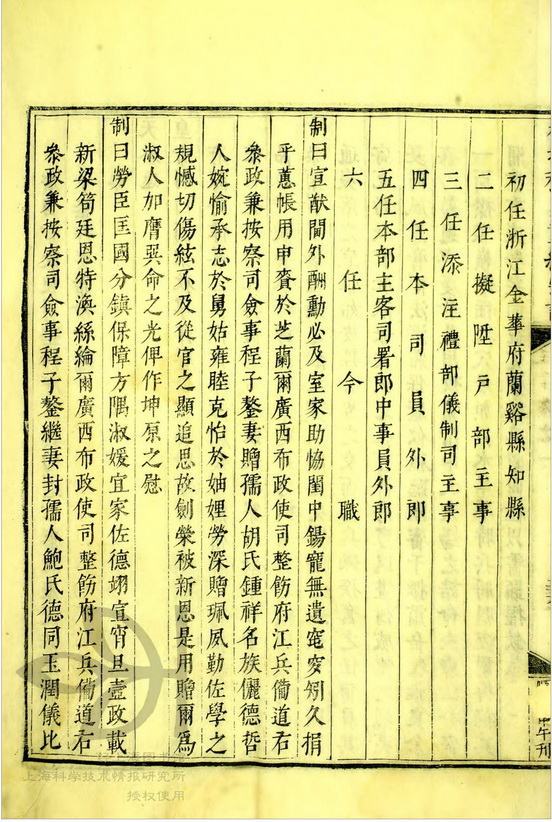 初任浙江金華府蘭谿縣知縣
二任擬陞戶部主事
三任添注禮部儀制司主事
四任本司員外郎
五任本部主客司署郎中事員外郎
六任今職
制曰宣猷閫外酬勳必及室家助恊閨中錫寵無遺窀穸矧久捐
乎蕙帳用申賚於芝蘭爾廣西布政使司整飭府江兵備道右
叅政兼按察司僉事程子鏊妻贈孺人胡氏鍾祥名族儷德哲
人婉愉承志於舅姑雍睦克怡於妯娌勞深贈珮夙勤佐學之
規憾切傷絃不及從官之顯追思故劍榮被新恩是用贈爾爲
淑人如膺巽命之光俾作坤原之慰
制曰勞臣匡國分鎮保障方隅淑媛宜家佐德翊宣宵旦壼政載
新梁笥廷恩特渙絲綸爾廣西布政使司整飭府江兵備道右
叅政兼按察司僉事程子鏊繼妻封孺人鮑氏德同玉潤儀比
甲午刊
上海圖書館
上海科学技术情报研究所
授权使用